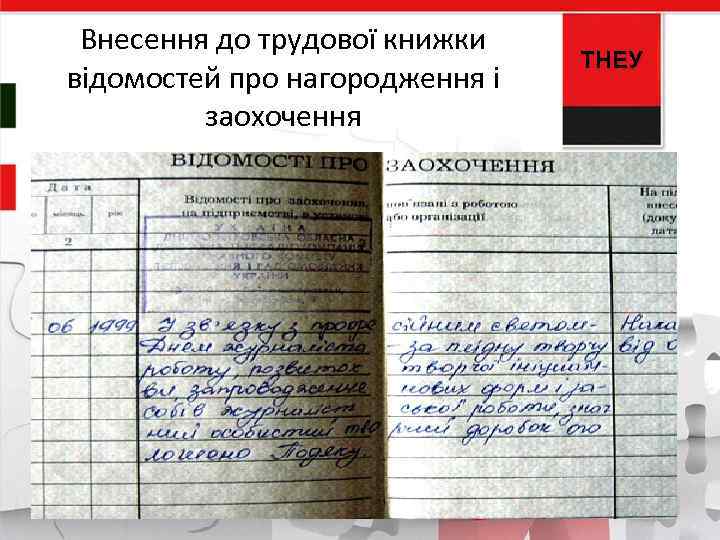 Внесення до трудової книжки
відомостей про нагородження і
заохочення
ТНЕУ
ВІДОМОСТІ ПРО ЗАОХОЧЕННЯ
Дата
місяць рік
2
Відомості про заохочення,
на підприємстві, в установ
пов'язані з роботою
або організації
На під
внесе
(доку
дата
УКРАЇНА
ОБЛАСНА
УКРАЇНИ
06 1999 У зв'язку з профе сійним святом- Нака
Днем журналіста -за плідну творчу від
роботу, розвиток творчої ініціати-
ви, запровадження нових форм і за-
собів журналіст ської роботи, знач
ний особистий тво рчий доробок ого
лошено Подяку.